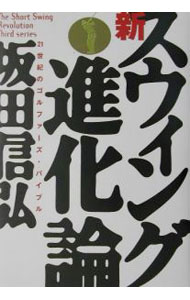 The Short Swing
Revolution
Third series
新
スウィング
進化論
21世紀のゴルファーズ・バイブル
坂田信弘